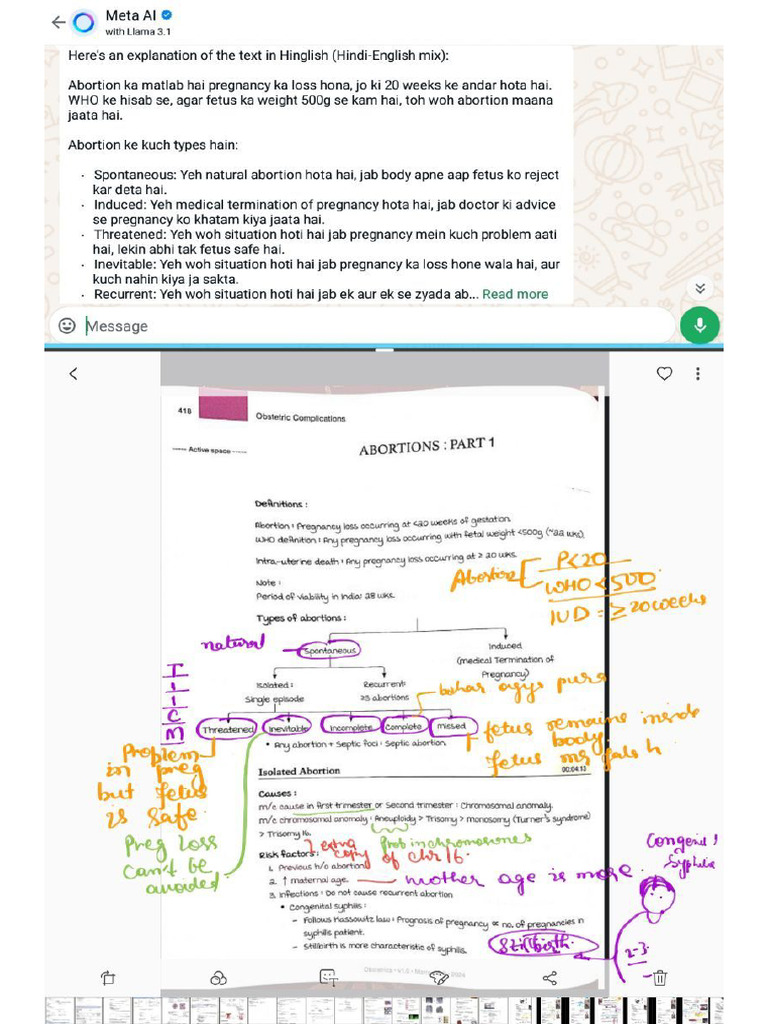 Meta AI
with Llama 3.1
Here's an explanation of the text in Hinglish (Hindi-English mix):
Abortion ka matlab hai pregnancy ka loss hona, jo ki 20 weeks ke andar hota hai.
WHO ke hisab se, agar fetus ka weight 500g se kam hai, toh woh abortion maana
jaata hai.
Abortion ke kuch types hain:
· Spontaneous: Yeh natural abortion hota hai, jab body apne aap fetus ko reject
kar deta hai.
· Induced: Yeh medical termination of pregnancy hota hai, jab doctor ki advice
se pregnancy ko khatam kiya jaata hai.
· Threatened: Yeh woh situation hoti hai jab pregnancy mein kuch problem aati
hai, lekin abhi tak fetus safe hai.
· Inevitable: Yeh woh situation hoti hai jab pregnancy ka loss hone wala hai, aur
kuch nahin kiya ja sakta.
· Recurrent: Yeh woh situation hoti hai jab ek aur ek se zyada ab... Read more
Message
418
Obstetric Complications
Active space
ABORTIONS : PART 1
Definitions :
Abortion : Pregnancy loss occurring at <20 weeks of gestation.
WHO definition : Any pregnancy loss occurring with fetal weight <500g (~22 wks).
Intra-uterine death : Any pregnancy loss occurring at ≥ 20 wks.
Abortion
P<20
WHO <500
IUD = ≥ 20 weeks
Note :
Period of viability in India: 28 wks.
Types of abortions :
natural
Spontaneous
Induced
(medical Termination of
Pregnancy)
Isolated :
Single episode
Recurrent:
≥3 abortions
bahar agya pura
T
I
I
C
M
Threatened
Inevitable
Incomplete
Complete
missed
fetus remains inside
body.
fetus
• Any abortion + Septic foci : Septic abortion.
Problem
in preg
but fetus
is safe.
Preg loss
can't be
avoided
Isolated Abortion
00:04:13
Causes :
m/c cause in first trimester or Second trimester : Chromosomal anomaly.
m/c chromosomal anomaly : Aneuploidy > Trisomy > monosomy (Turner's syndrome)
> Trisomy 16.
1 extra
copy of chr 16.
Prob in chromosomes
Risk factors :
1. Previous h/o abortion
2. ↑ maternal age.
mother age is more.
3. Infections : Do not cause recurrent abortion
• Congenital syphilis :
- Follows Kassowitz law : Prognosis of pregnancy ∝ no. of pregnancies in
syphilis patient.
- Stillbirth is more characteristic of syphilis.
Still birth.
Syphilis
2-3